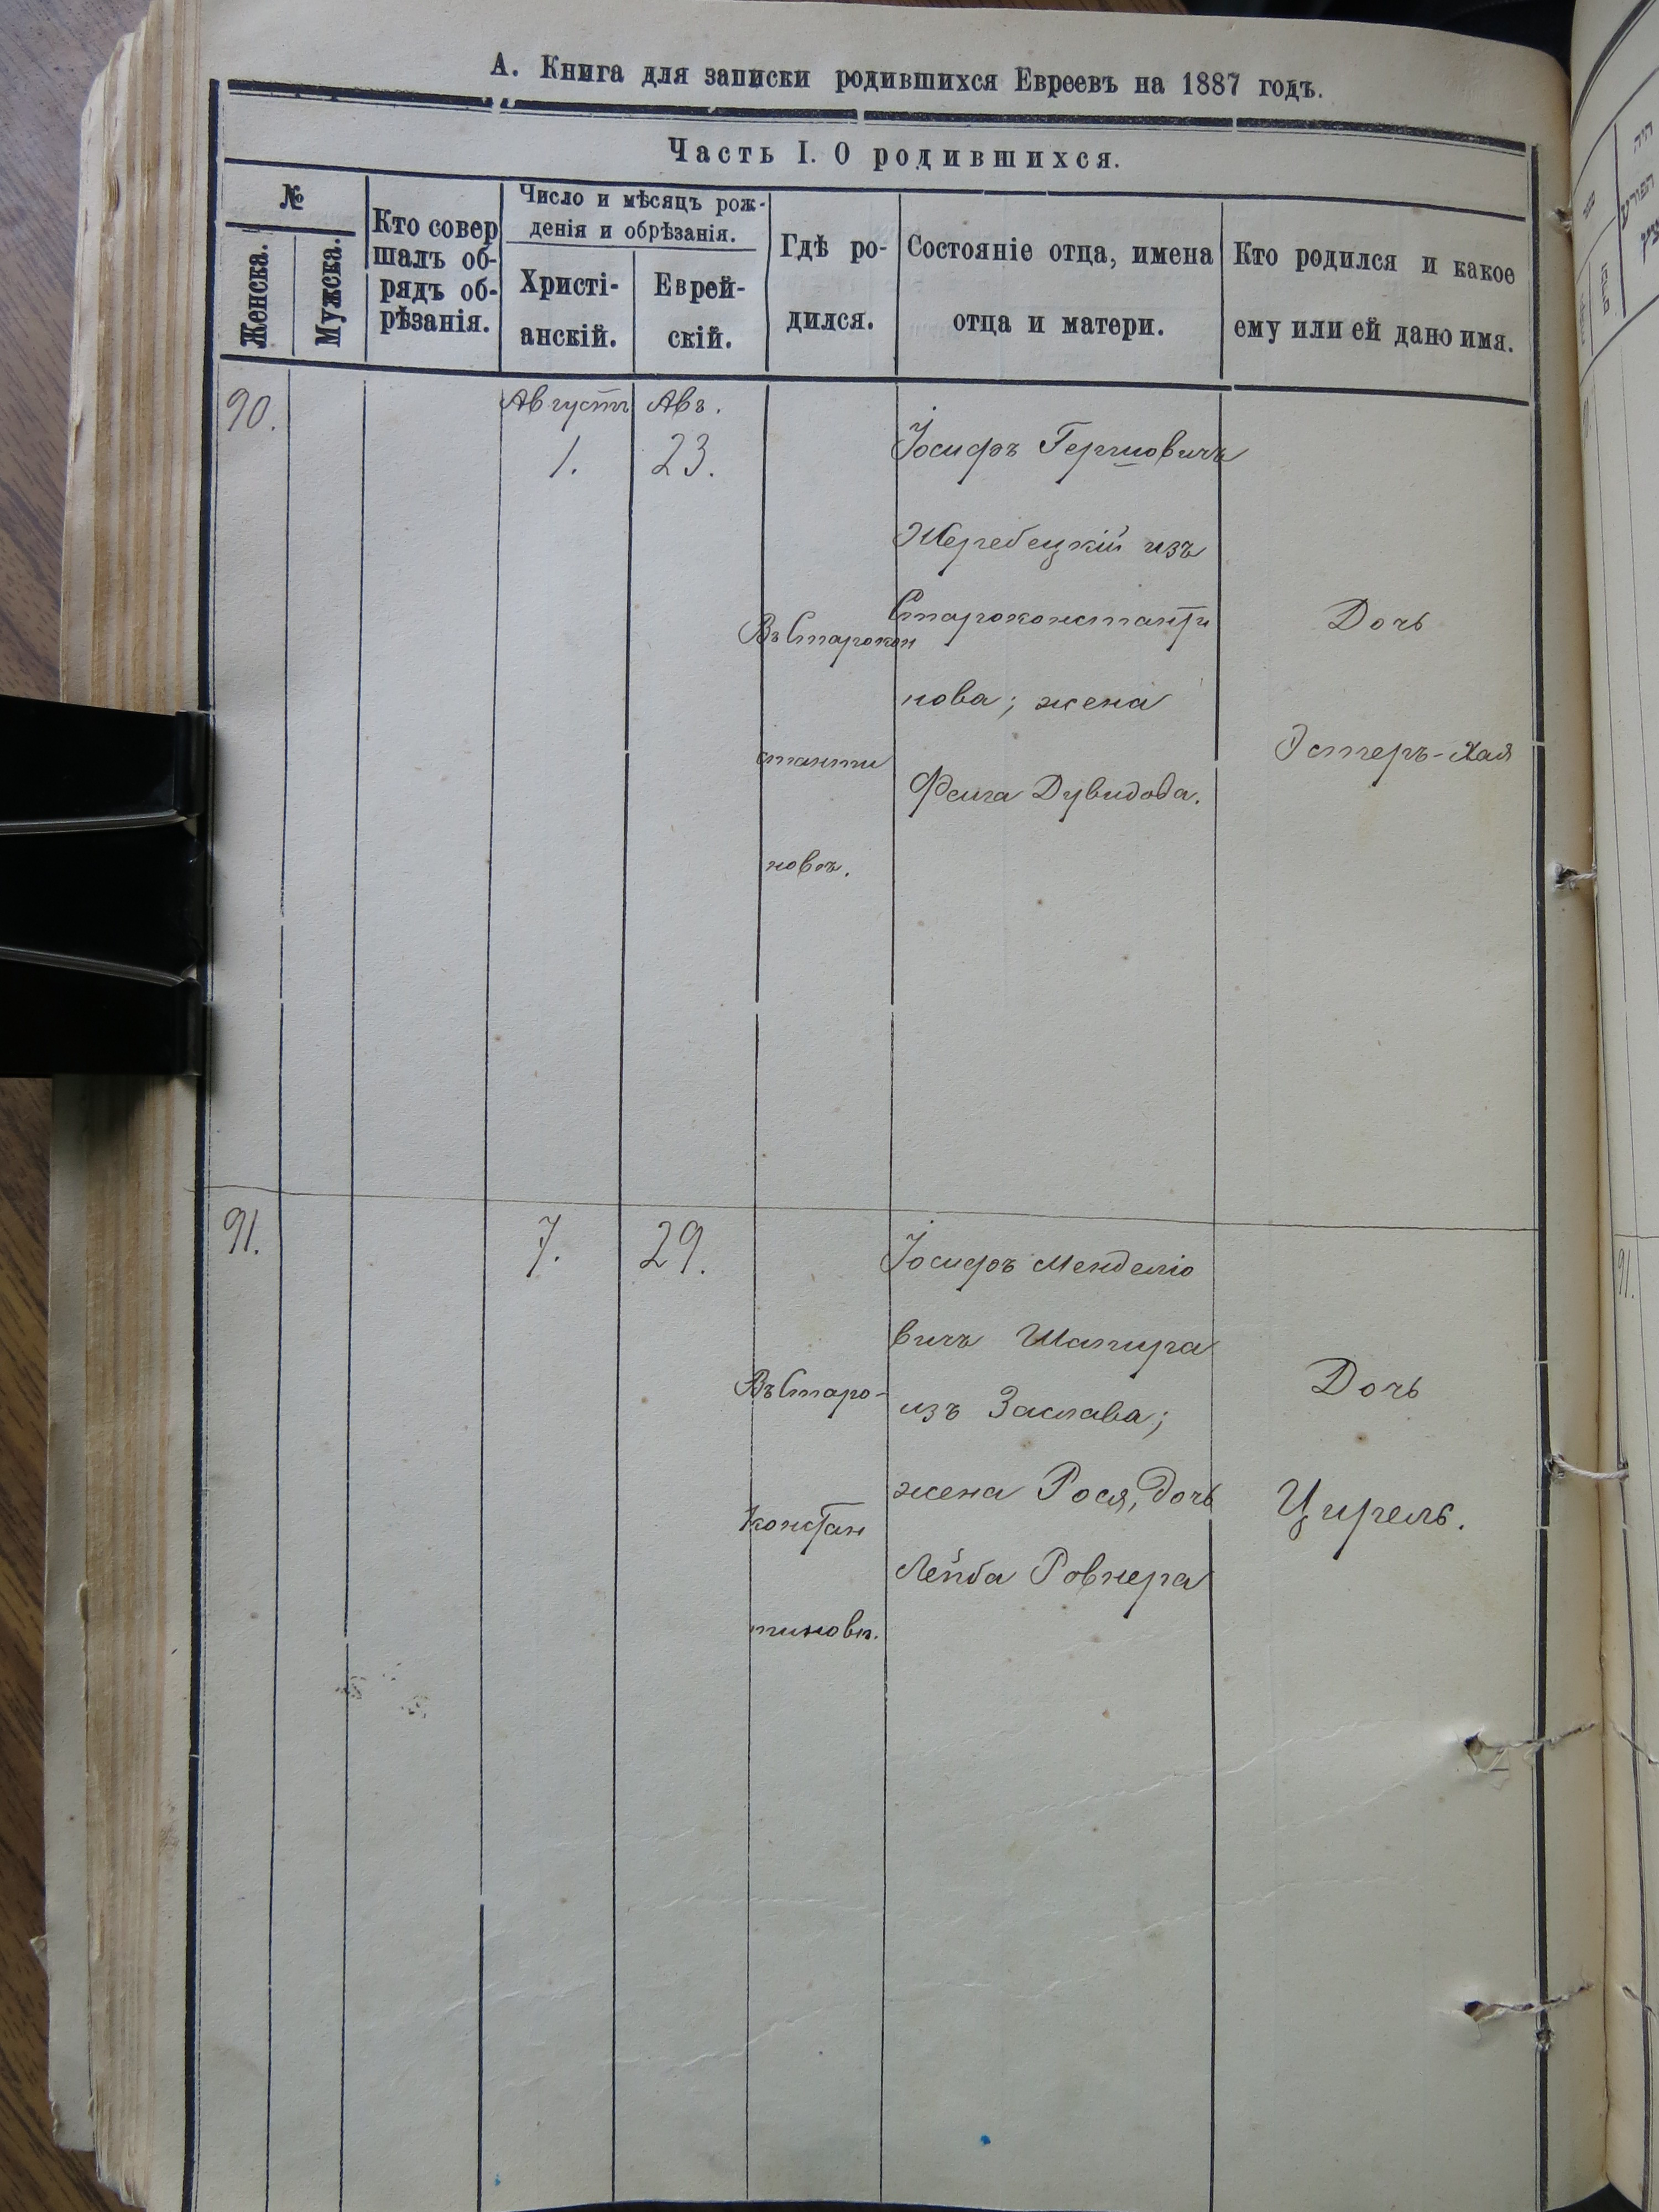 А. Книга для записки родившихся Евреевъ на 1887 годъ.
Часть I. О родившихся.
№
Женска.
Мужска.
Кто совер
шалъ об-
рядъ об-
рѣзанія.
Число и мѣсяцъ рож-
денія и обрѣзанія.
Христі-
анскій.
Еврей-
скій.
Гдѣ ро-
дился.
Состояніе отца, имена
отца и матери.
Кто родился и какое
ему или ей дано имя.
90.
Августъ
1.
Авъ.
23.
Въ Старокон
станти
новѣ.
Іосифъ Гершовичъ
Жеребецкій изъ
Староконстанти
нова; жена
Фейга Дувидова.
Дочь
Эстеръ-Хая
91.
7.
29.
Въ Старо-
констан
тиновѣ.
Іосифъ Менделіо
вичъ Шапира
изъ Заслава;
жена Рося, дочь
Лейба Ровнера
Дочь
Цирель.
91.